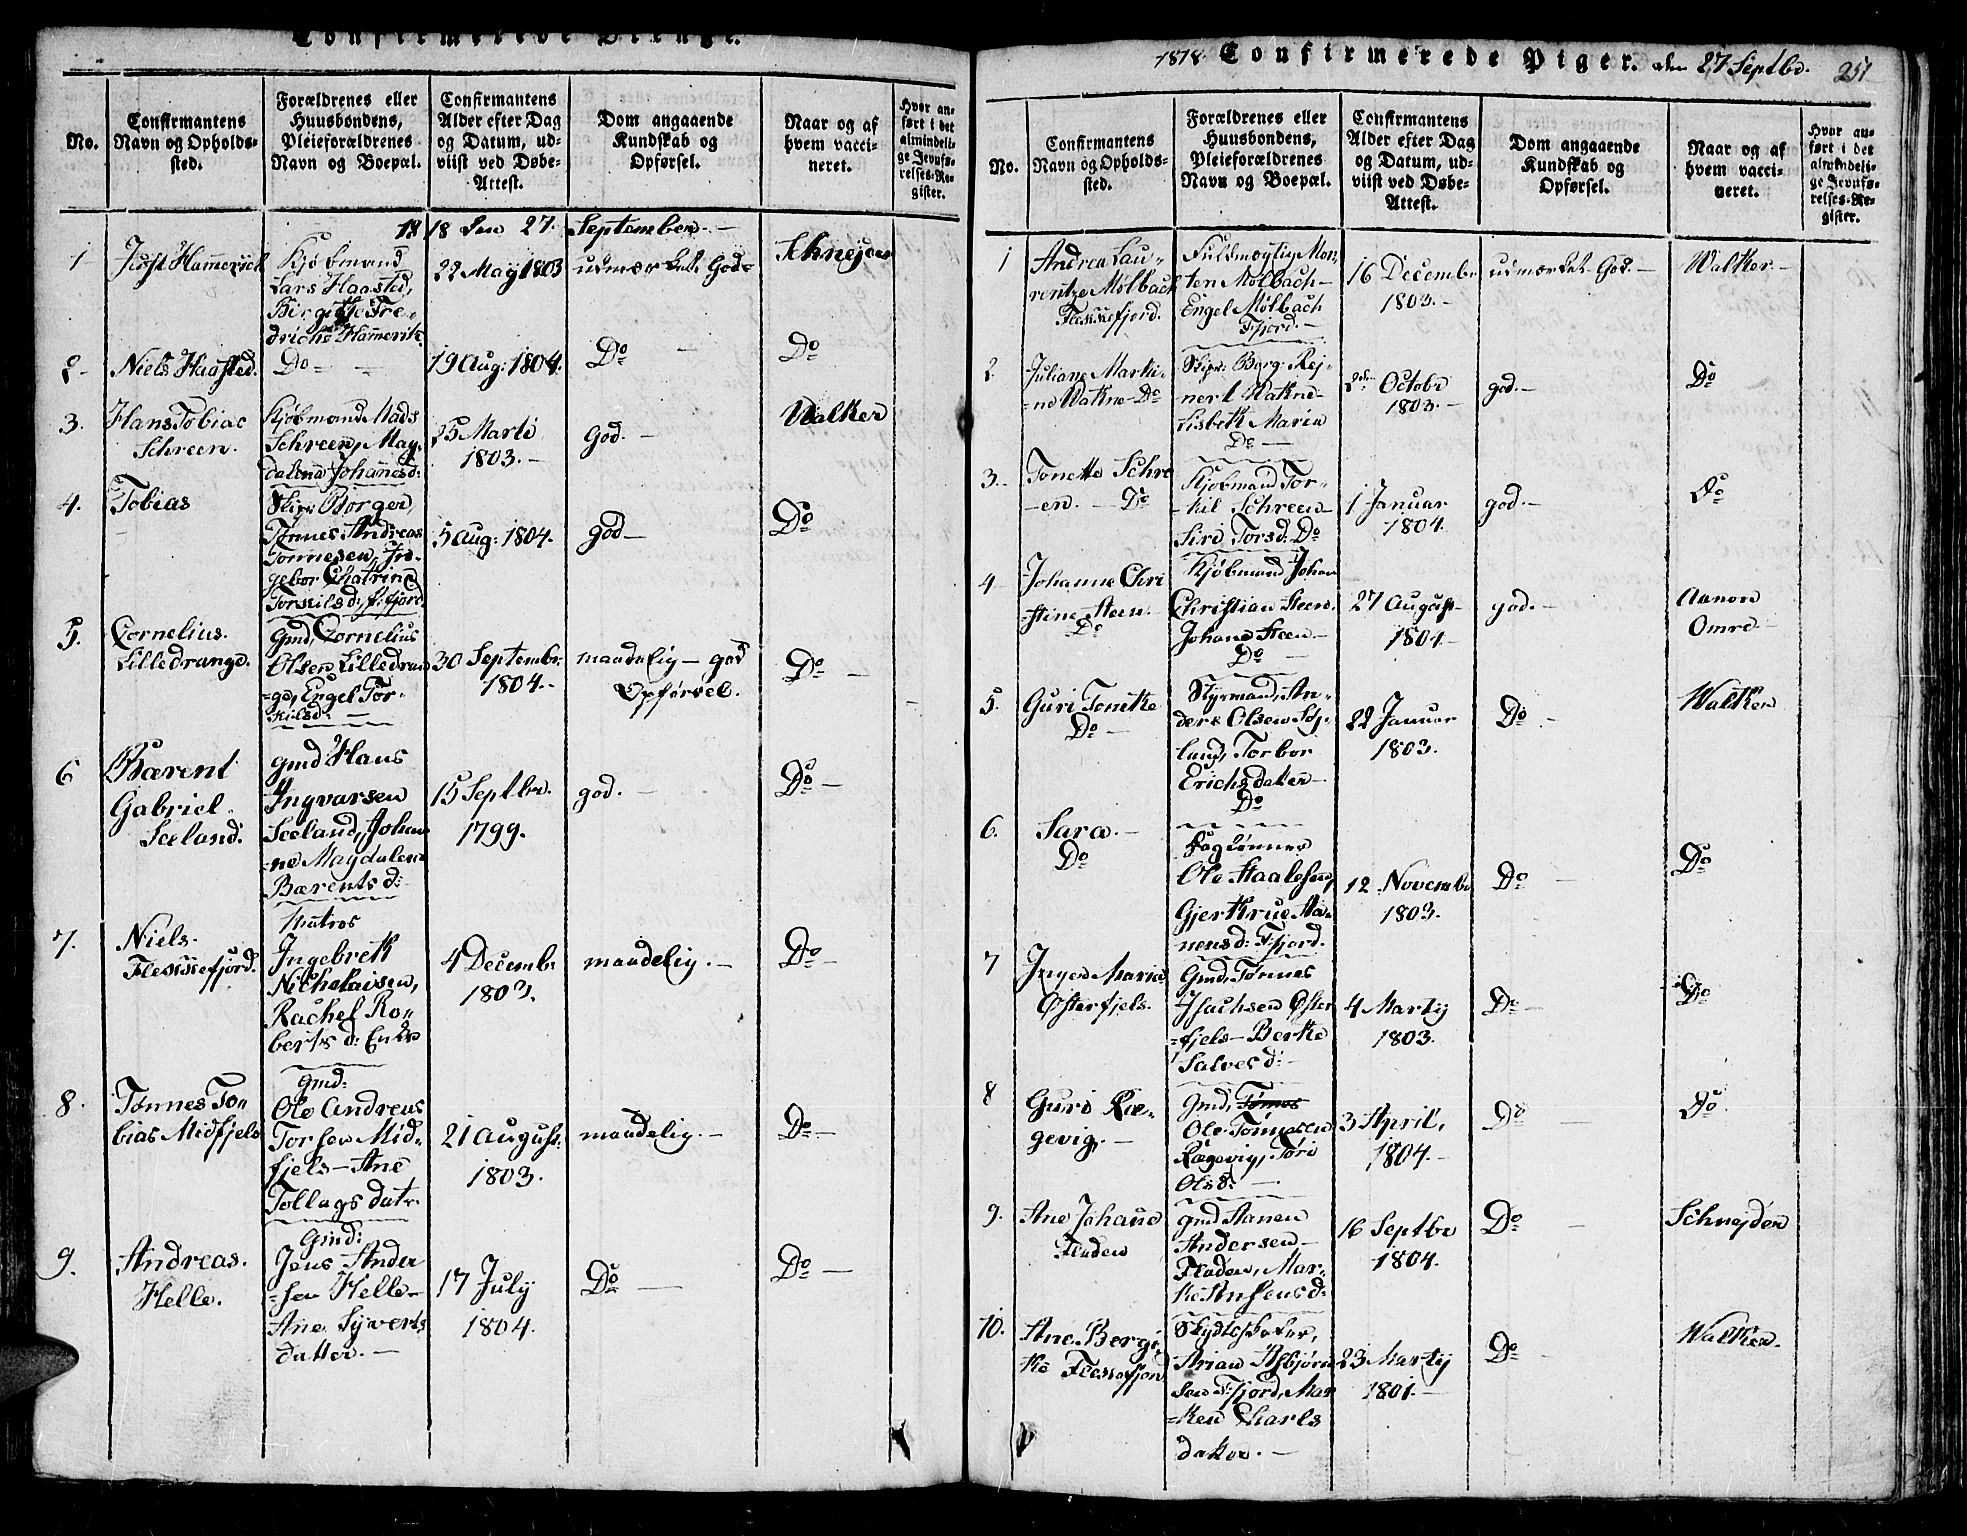 Confirmerede Drenge.
No.
Confirmantens
Navn og Opholds-
sted.
Forældrenes eller
Huusbondens,
Pleieforældrenes
Navn og Boepæl.
Confirmantens
Alder efter Dag
og Datum, ud-
viist ved Døbe-
Attest.
Dom angaaende
Kundskab og
Opførsel.
Naar og af
hvem vacci-
neret.
Hvor an-
ført i det
almindeli-
ge Jevnfø-
relses-Re-
gister.
1818 den 27. September. -
1
Just Hammerich
Kjøbmand
Lars Haasted,
Birgitte Fre-
drichs Hamerik
22 Maÿ 1803
udmærket God-
Schnejder
2 -
Niels Haasted.
Do - -
19 Aug: 1804.
Do -
Do
3.
Hans Tobias
Schreen.
Kjøbmand Mads
Schreen, Mag-
dalena Johannesd:
25 Marti
1803. -
God. -
Walker
4.
Tobias
Skipr Borger,
Tønnes Andreas
Tønnesen, In-
gebor Chatrine
Torkilsd: f:fjord.
5 Aug: 1804.
god -
Do
5.
Cornelius.
Lilledrange.
Gmd, Cornelius
Olsen Lilledran
=ge, Engel Tor-
kilsd. -
30 Septembr.
1804. -
maadelig - god
Opførsel.
Do -
6
Bærent
Gabriel
Seeland.
gmd Hans
Ingvarsen
Seeland, Johan
=ne Magdalene
Bærents d:
15 Septbr.
1799.
god. -
Do -
7.
Niels.
Flekkefjord.
Matros
Ingebrekt
Nicholaisen,
Rachel Ro-
berts d: Enke
4 Decembr
1803.
maadelig. -
Do -
8.
Tønnes To-
bias Midfjels
gmd:
Ole Andreas
Torsen Mid-
fjels - Ane
Tollags datr.
21 August.
1803.
maadelig. -
Do -
9.
Andreas.
Helle.
Gmd:
Jens Ander
=sen Helle -
Ane Syverts
datter. -
17 Julÿ
1804.
Do -
Do -
1818. Confirmerede Piger. den 27 Septbr. 251
No.
Confirmantens
Navn og Opholds-
sted.
Forældrenes eller
Huusbondens,
Pleieforældrenes
Navn og Boepæl.
Confirmantens
Alder efter Dag
og Datum, ud-
viist ved Døbe-
Attest.
Dom angaaende
Kundskab og
Opførsel.
Naar og af
hvem vacci-
neret.
Hvor an-
ført i det
almindeli-
ge Jevnfø-
relses-Re-
gister.
1
Andrea Lau-
rentze Mølbach
Flekkefjord.
Fuldmægtig Mor-
ten Mølbach -
Engel Mølbach
Fjord. -
16 Decembr
1803. -
udmærket God. -
Walker. -
2
Juliane Marti-
=ne Watne - Do
Skipr. Borg. Rej-
nert Watne -
Lisbeth Maria
Do -
2den Octobr
1803. -
god. -
Do
3.
Tonette Schre
-en. - Do
Kjøbmand Tor-
-kil Schreen -
Siri Torsd: Do
1 Januar
1804.
god. -
Do
4
Johanne Chri
-stine Steen.
Do
Kjøbmand Johan
Christian Steen.
Johane Steen -
Do -
27 August -
1804 -
god. -
Aanon
Omre. -
5.
Guri Tomke
Do -
Styrmand, An-
ders Olsen
Torbor
Erichsdatter -
Do
22 Januar
1803.
Do -
Walker
6.
Sara. -
Do
Daglønner
Ole Staalesen,
Gjertrue Aa-
nensd: Fjord.
12 Novembr
1803.
Do -
Do
7
Inger Maria
Østerfjels.
Gmd, Tønnes
Isachsen Øster
=fjels - Berte
Salves d: -
4 Martÿ
1803.
Do -
Do
8
Guri Ræ-
gevig. -
Gmd, Tønnes
Ole Tønnesen
Rægevig, Tøri
Olsd: -
3 April,
1804. -
Do -
Do
9.
Ane Johane
Fladen
gmd Aanen
Andersen -
Fladen, Mar-
the Ansensd:
16 Septbr
1804.
Do -
Schnejder
10.
Ane Bergi-
te Flekkefjord
Skydtsskafer,
Arian Asbjørn
sen F:fjord, Mar
=ken Charls
datter. -
23 Martÿ
1801. -
Do -
Walker.